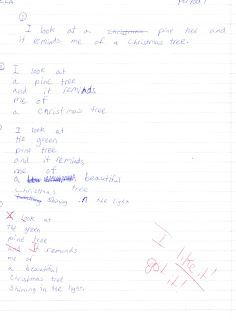 Period 1
①
I look at a christmas pine tree and
it reminds me of a Christmas tree.
I look at
a pine tree
and it reminds
me of
a Christmas tree
I look at
the green
pine tree
and it reminds
me of
a beautiful
Christmas tree
shining in the light
I look at
the green
pine tree
and it reminds
me of
a beautiful
Christmas tree
Shining in the light.
I like it!
got it!